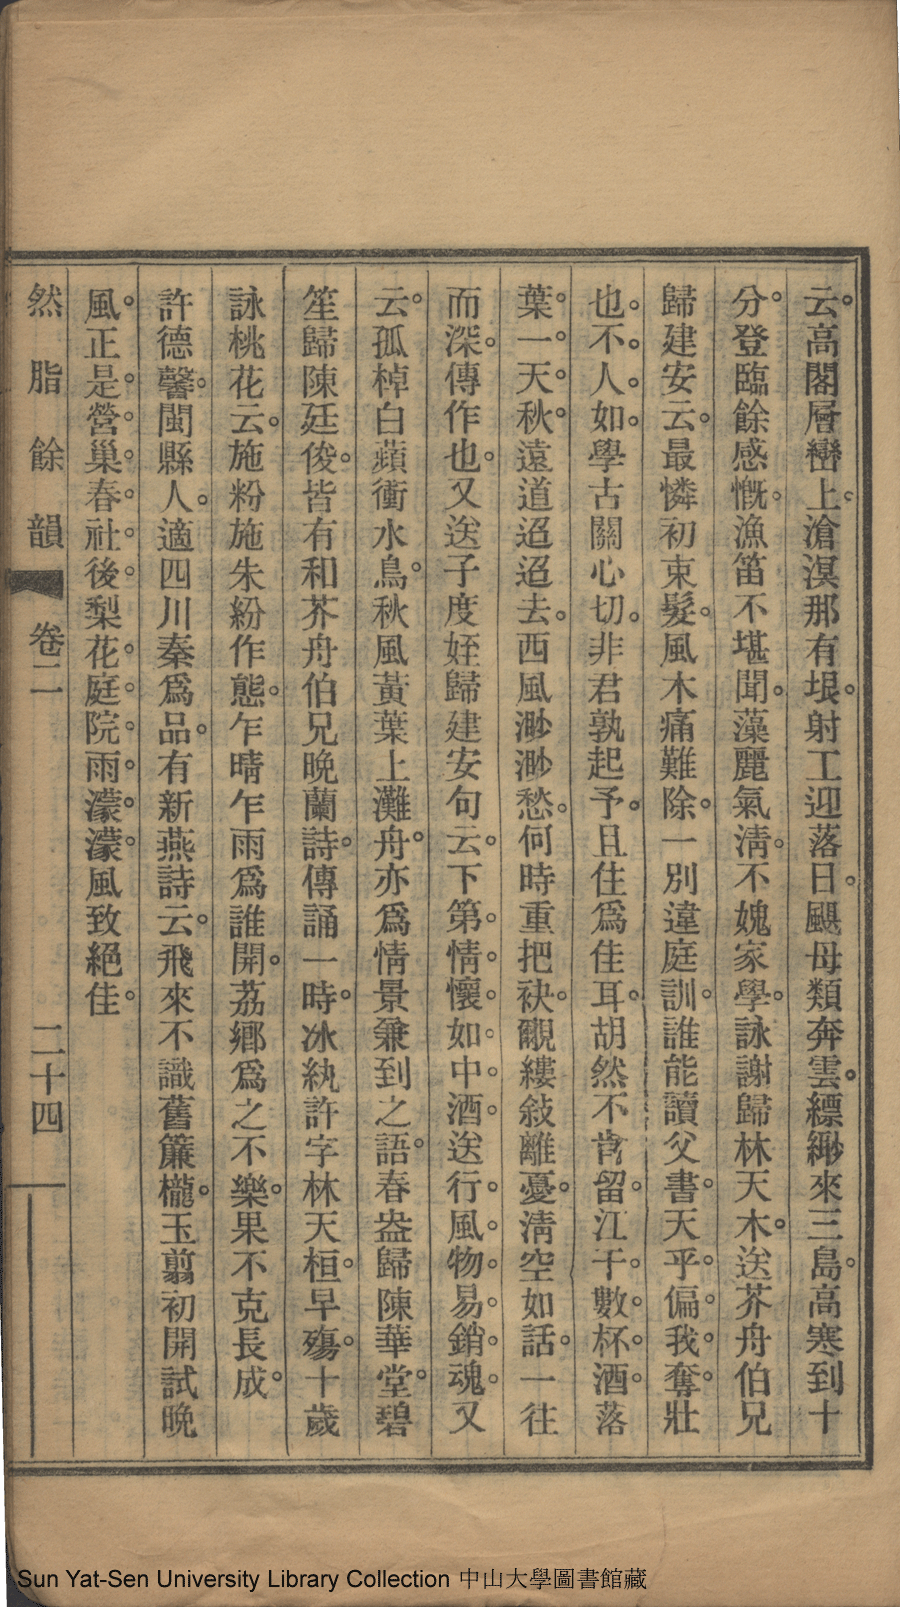 云。高閣層巒上。滄溟那有垠。射工迎落日。颶母類奔雲。縹緲來三島。高寒到十
分。登臨餘感慨。漁笛不堪聞。藻麗氣淸。不媿家學。詠謝歸林天木。送芥舟伯兄
歸建安云。最憐初束髮。風木痛難除。一別違庭訓。誰能讀父書。天乎。偏我。奪壯
也。不。人。如。學古關心切。非君孰起予。且住爲佳耳。胡然不肯留。江干。數。杯。酒。落
葉。一。天。秋。遠道迢迢去。西風渺渺愁。何時重把袂。覼縷敍離憂。淸空如話。一往
而深。傳作也。又送子度姪歸建安句云。下第。情。懷。如。中。酒。送行。風。物。易。銷。魂。又
云。孤棹白蘋衝水鳥。秋風黃葉上灘舟。亦爲情景兼到之語。春盎歸陳華堂。碧
笙歸陳廷俊。皆有和芥舟伯兄晚蘭詩。傳誦一時。冰紈許字林天桓。早殤。十歲
詠桃花云。施粉施朱紛作態。乍晴乍雨爲誰開。荔鄕爲之不樂。果不克長成。
許德馨。閩縣人。適四川秦爲品。有新燕詩云。飛來不識舊簾櫳。玉翦初開試晚
風。正是。營。巢。春。社。後。梨花。庭。院。雨。濛。濛。風致絕佳。
然脂餘韻 卷二 二十四
Sun Yat-Sen University Library Collection 中山大學圖書館藏